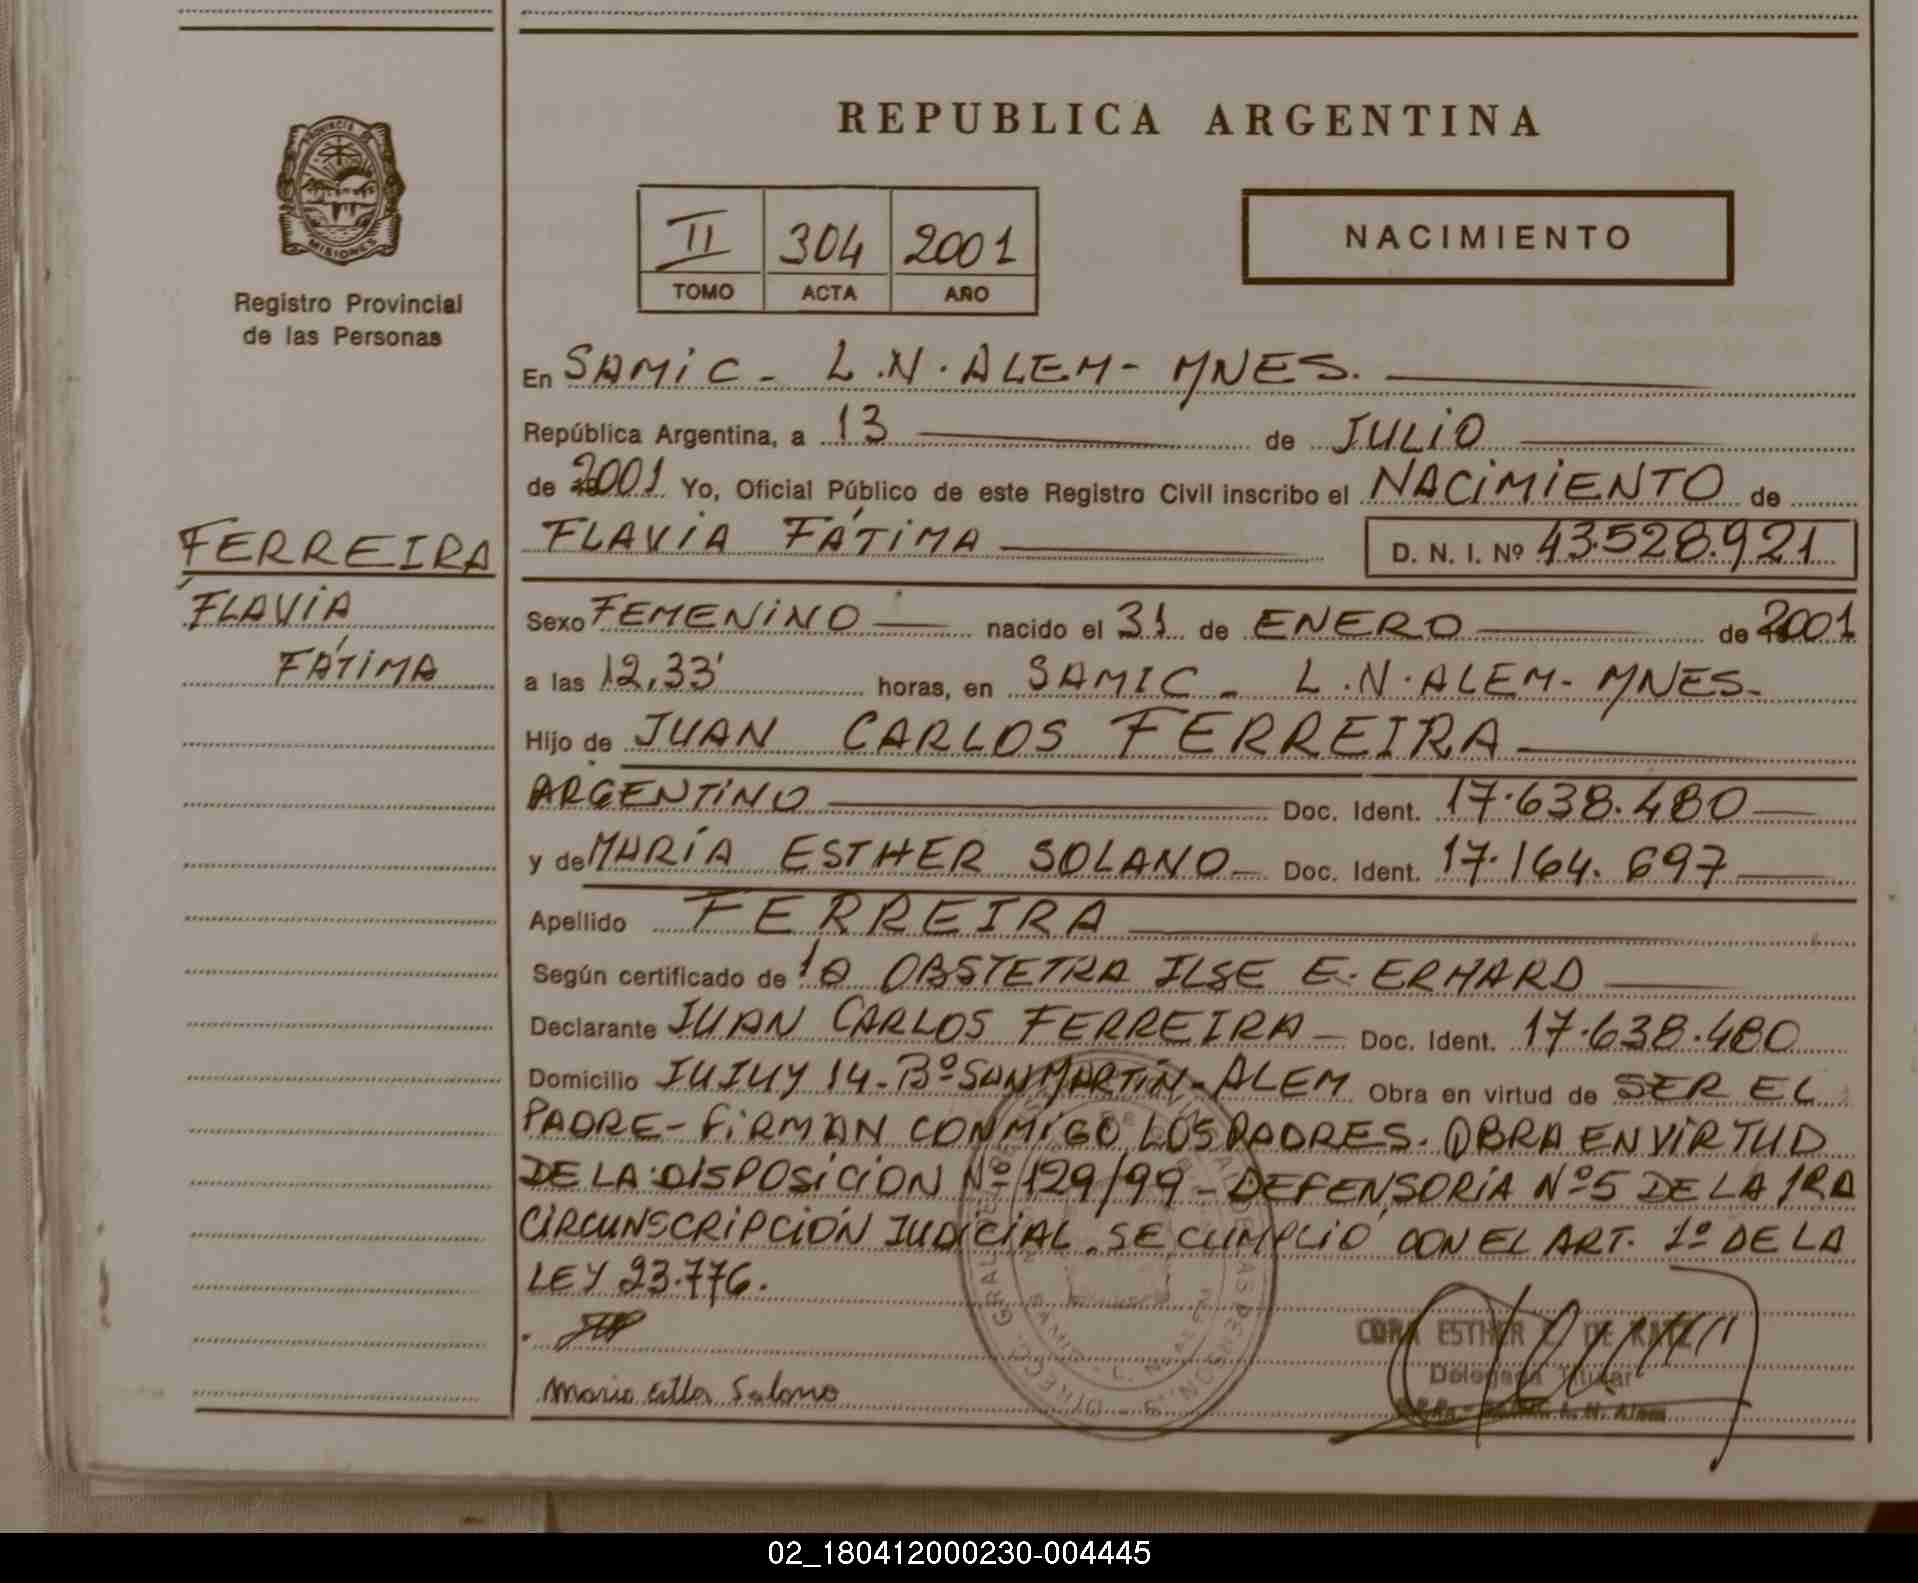 REPUBLICA ARGENTINA
PROVINCIA DE
MISIONES
Registro Provincial
de las Personas
II 304 2001
TOMO ACTA AÑO
NACIMIENTO
En SAMIC - L.N. ALEM - MNES.
República Argentina, a 13 de JULIO
de 2001 Yo, Oficial Público de este Registro Civil inscribo el NACIMIENTO de
FERREIRA
FLAVIA
FÁTIMA
FLAVIA FÁTIMA D. N. I. Nº 43.528.921
Sexo FEMENINO nacido el 31 de ENERO de 2001
a las 12,33' horas, en SAMIC - L.N. ALEM - MNES-
Hijo de JUAN CARLOS FERREIRA
ARGENTINO Doc. Ident. 17.638.480
y de MARÍA ESTHER SOLANO Doc. Ident. 17.164.697
Apellido FERREIRA
Según certificado de la OBSTETRA ILSE E. ERHARD
Declarante JUAN CARLOS FERREIRA Doc. Ident. 17.638.480
Domicilio JUJUY 14 - Bº SAN MARTÍN - ALEM Obra en virtud de SER EL
PADRE - FIRMAN CONMIGO LOS PADRES. OBRA EN VIRTUD
DE LA DISPOSICIÓN Nº 129/99 - DEFENSORÍA Nº 5 DE LA 1RA
CIRCUNSCRIPCIÓN JUDICIAL. SE CUMPLIÓ CON EL ART. 1º DE LA
LEY 23.776.
ESTHER DE
Delegada Titular
L. N. Alem
02_180412000230-004445